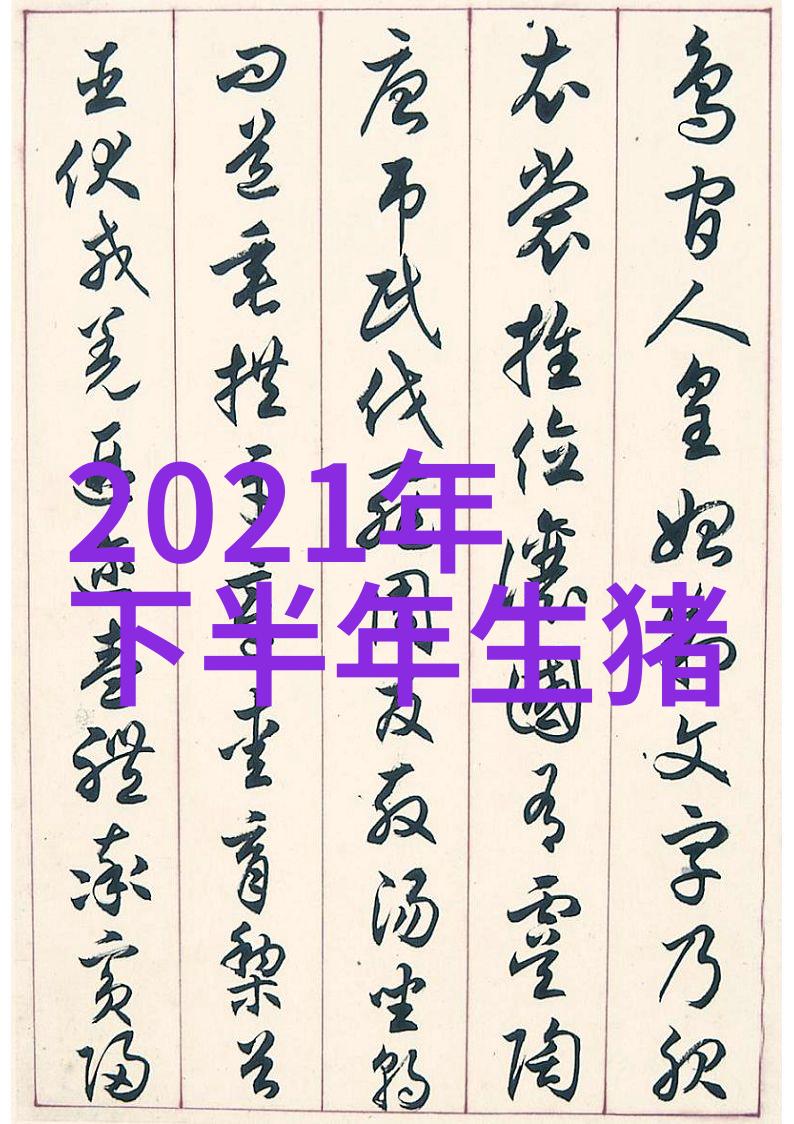 鳥官人皇始制文字乃服
衣裳推位讓國有虞陶
唐吊民伐罪周發殷湯坐朝
問道垂拱平章愛育黎首
臣伏戎羌遐邇壹體率賓歸
2021年
下半年生猪